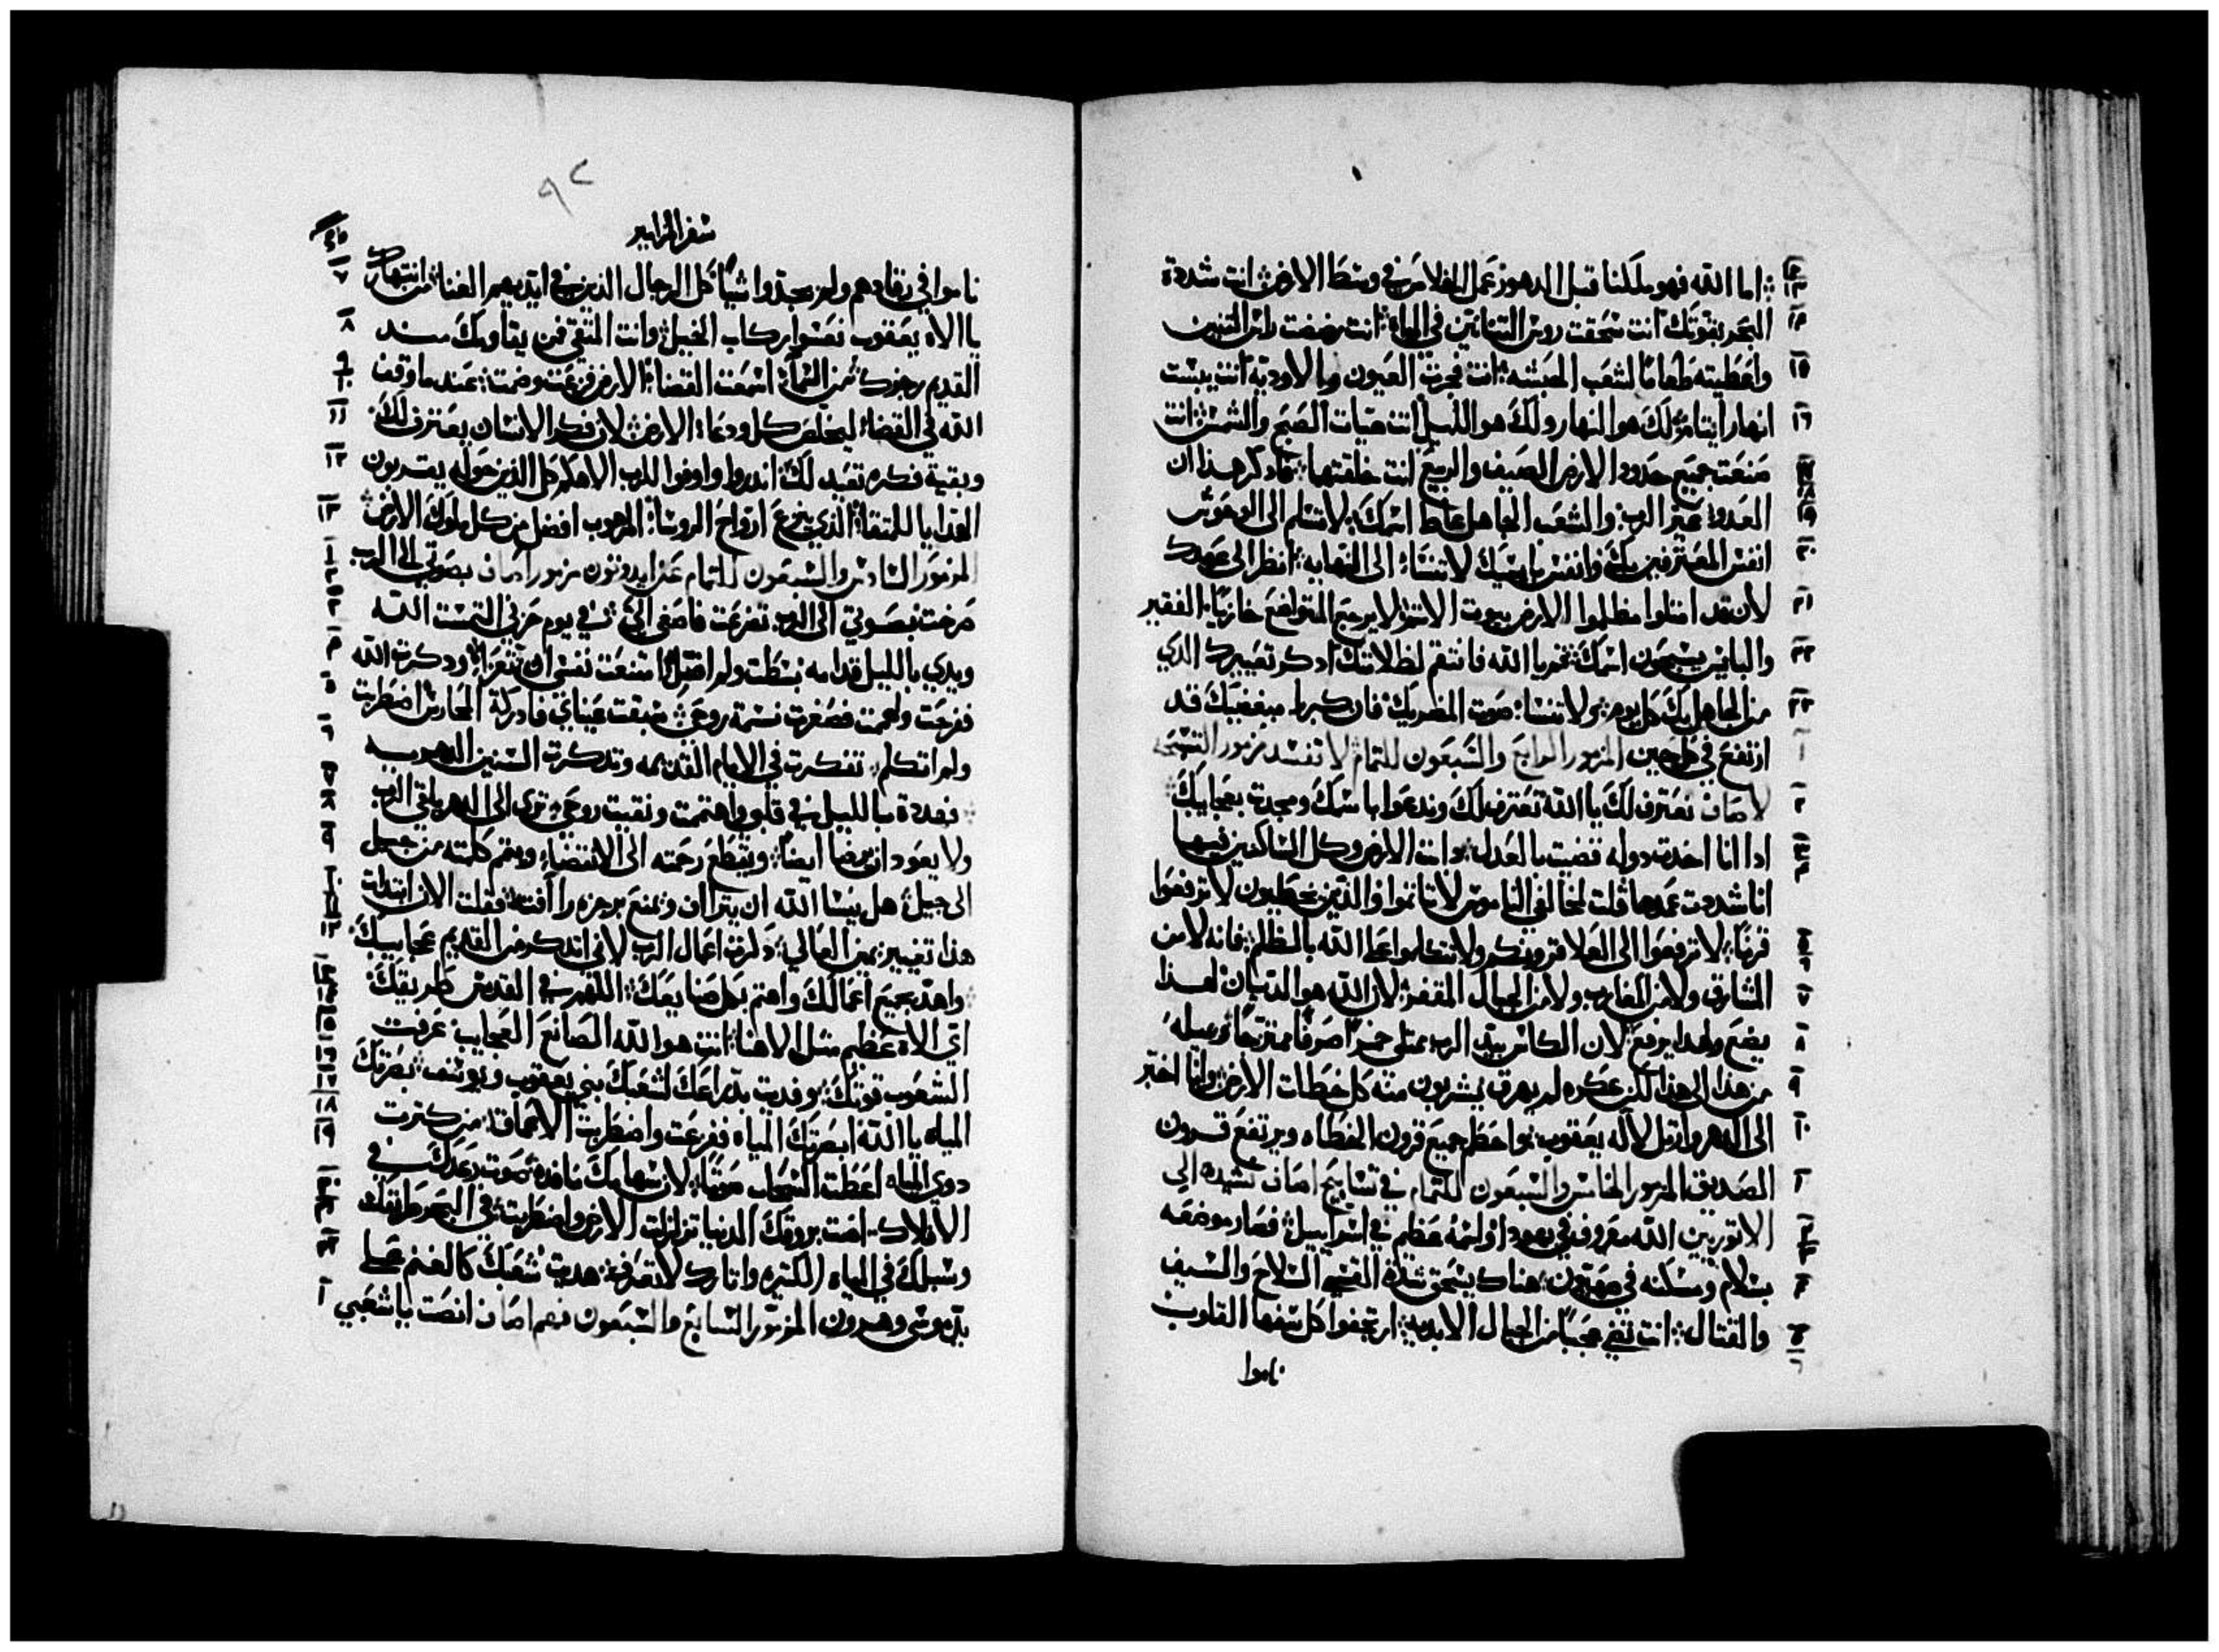 اما الله فهو ملكنا قبل الدهور عمل الخلاص في وسط الارض انت شددة
البحر بقوتك انت سحقت روس التنانين في المياه انت رضضت راس التنين
واعطيته طعاما لشعب الحبشه انت فجرت العيون والاودية انت يبست
انهار ايتام لك هو النهار ولك هو الليل انت هيات الصبح والشمس انت
صنعت جميع حدود الارض الصيف والربيع انت خلقتها فادكر هذا ان
العدو عير الرب والشعب الجاهل اسمك لا تسلم الى الوحوش
انفس المعترفين بك وانفس لا تنسا الى النهايه انظر الى عهدك
لان قد امتلوا مظلموا الارض بيوت الاثم لا يرجع المتواضع خازيا الفقير
والبايس يسبحون اسمك قم يا الله فانتقم لظلامتك ادكر تعييرك الدي
من الجاهل بك كل يوم لا تنسا صوت المضريك فان كبريا مبغضيك قد
ارتفع في كل حين المزمور الرابع والسبعون للتمام لا تفسد مزمور التسبحه
لاصاف نعترف لك يا الله نعترف لك وندعوا باسمك ومجدت بعجايبك
ادا انا اخدت دوله قضيت بالعدل دابت الارض وكل الساكنين فيها
انا شددت عمدها قلت لمخالفي الناموس لا تاتموا والدين يخطيون لا ترفعوا
قرنا لا ترفعوا الى العلا قرونكم ولا تتكلموا على الله بالظلم فانه لا من
المشارق ولا من المغارب ولا من الجبال المقفره لان الله هو الديان لهدا
يضع ولهدا يرفع لان الكاس بيد الرب ممتلي خمرا صرفا ممتزجا وميله
من هدا الى هدا لكن عكره لم يهرق يشربون منه كل خطات الارض وانا اخبر
الى الدهر وارتل لاله يعقوب واحطم جميع قرون الخطاه ويرتفع قرون
الصديق المزمور الخامس والسبعون للتمام في تسابيح اصاف نشيده الى
الاتوريين الله معروف في يهودا واسمه عظيم في اسراييل فصار موضعه
بسلام ومسكنه في صهيون هناك يسحق شدة القسي السلاح والسيف
والقتال انت تضي عجبا من الجبال الابديه ارتجفوا كل سفها القلوب
ناموا
سفر المزامير
ناموا في رقادهم ولم يجدوا شيا كل الرجال الذين في ايديهم الغنا من انتهارك
يا الاه يعقوب نعسوا ركاب الخيل وانت المتقي فمن يقاومك مند
القديم رجزك من السما اسمعت القضا الارض فزعت وصمتت عند ما وقف
الله في القضا ليخلص كل ودعا الارض لان فكر الانسان يعترف لك
وبقية فكره تعيد لك اندروا واوفوا للرب الاهكم كل الذين حوله يقدمون
الهدايا للمتقا الذي ينزع ارواح الروسا المرهوب افضل من كل ملوك الارض
المزمور السادس والسبعون للتمام عن ايدوتون مزمور اصاف بصوتي الى الرب
صرخت بصوتي الى الرب تضرعت فاصغى الي في يوم حزني التمست الله
ويدي بالليل قدامه بسطت ولم اضل امتنعت نفسي ان تتعزا ودكرت الله
ففرحت ولهجت فصغرت نسمة روحي سبقت عيناي فادركة المحارس اضطربت
ولم اتكلم تفكرت في الايام القديمه وتدكرت السنين الدهريه
فهددة بالليل في قلبي واهتممت ونقبت روحي ترى الى الدهر يقي الرب
ولا يعود ان يرضا ايضا ويقطع رحمته الى الانقضا ويتم كلمته من جيل
الى جيل هل ينسا الله ان يتراف ويمنع برجزه رافته فقلت الان ابتدات
هدا تغيير يمين العالي دكرت اعمال الرب لاني اتدكر من القديم عجايبك
واهد بجميع اعمالك واهتم بكل صنايعك اللهم في القديس طريقك
اي الاه عظيم مثل الاهنا انت هو الله الصانع العجايب عرفت
الشعوب قوتك وفديت بدراعك لشعبك بني يعقوب ويوسف بصرتك
المياه يا الله ابصرتك المياه ففزعت واضطربت الاعماق من كثرت
دوي المياه اعطت السحاب صوتا لان سهامك نافده صوت رعدك في
الافلاك اضت بروقك الدنيا تزلزلت الارض واضطربت في البحر طرقك
وسبلك في المياه الكتيره واتارك لا تعرف هديت شعبك كالغنم على
يد موسى وهرون المزمور السابع والسبعون فهم اصاف انصت يا شعبي